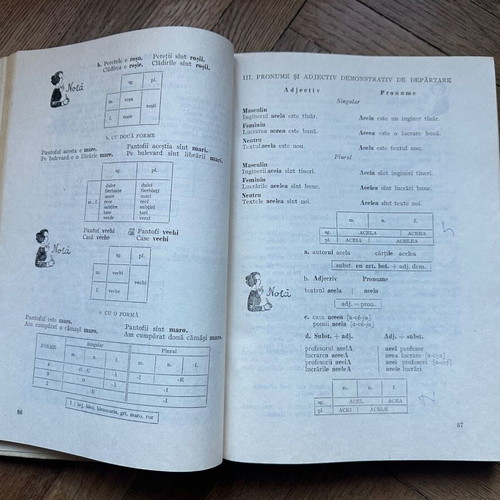 b. Peretele e roșu. Pereții sînt roșii.
Clădirea e roșie. Clădirile sînt roșii.
Notă
sg. pl.
m. roșu
roșii
f. roșie
b. CU DOUĂ FORME
Pantoful acesta e mare. Pantofii aceștia sînt mari.
Pe bulevard e o librărie mare. Pe bulevard sînt librării mari.
sg. pl.
m. f.
dulce dulci
fierbinte fierbinți
mare mari
rece reci
subțire subțiri
tare tari
verde verzi
Pantof vechi Pantofi vechi
Casă veche Case vechi
Notă
sg. pl.
m. vechi
vechi
f. veche
c. CU O FORMĂ
Pantoful este maro. Pantofii sînt maro.
Am cumpărat o cămașă maro. Am cumpărat două cămăși maro.
FORME Singular Plural
m. n. f. m. n. f.
86
III. PRONUME ȘI ADJECTIV DEMONSTRATIV DE DEPĂRTARE
Adjectiv Pronume
Singular
Masculin
Inginerul acela este tînăr. Acela este un inginer tînăr.
Feminin
Lucrarea aceea este bună. Aceea este o lucrare bună.
Neutru
Textul acela este nou. Acela este textul nou.
Plural
Masculin
Inginerii aceia sînt tineri. Aceia sînt ingineri tineri.
Feminin
Lucrările acelea sînt bune. Acelea sînt lucrări bune.
Neutru
Textele acelea sînt noi. Acelea sînt texte noi.
m. n. f.
sg. ACELA ACEEA
pl. ACEIA ACELEA
a. autorul acela cărțile acelea
subst. cu art. hot. + adj. dem.
Notă
b. Adjectiv Pronume
teatrul acela acela
adj. = pron.
c. casa aceea
pomii aceia
d. Subst. + adj. Adj. + subst.
profesorul acelA acel profesor
lucrarea aceeA acea lucrare
profesorii aceiA acei profesori
lucrările aceleA acele lucrări
m. n. f.
sg. ACEL ACEA
pl. ACEI ACELE
87